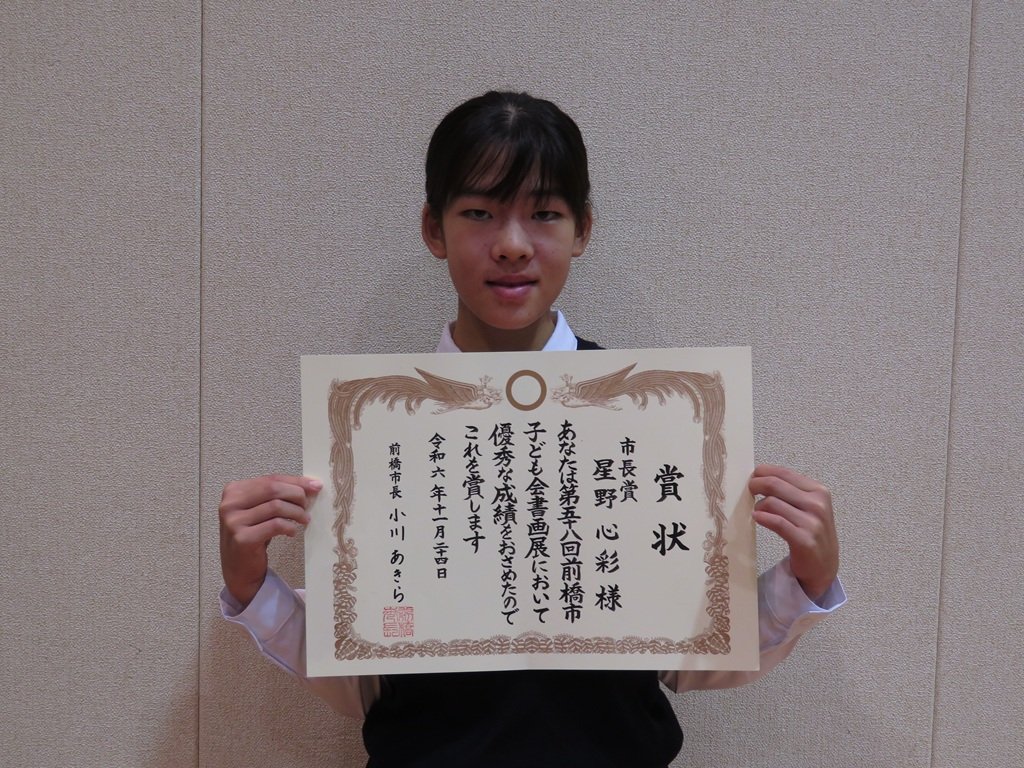 賞状
市長賞
星野心彩様
あなたは第五十八回前橋市
子ども会書画展において
優秀な成績をおさめたので
これを賞します
令和六年十一月二十四日
前橋市長 小川あきら